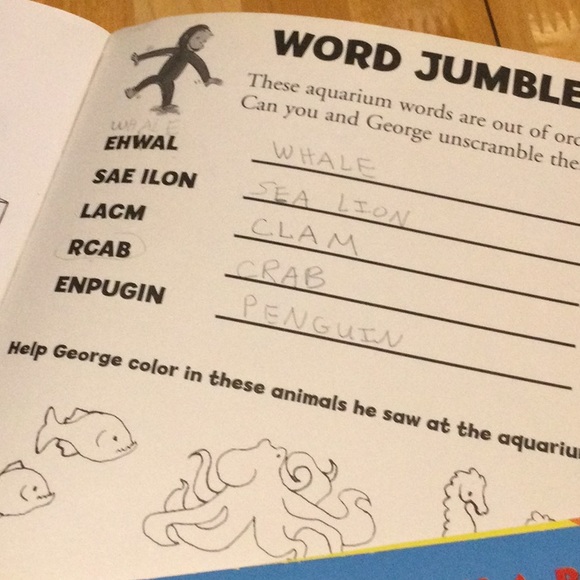 WORD JUMBLE
These aquarium words are out of
Can you and George unscramble
WHALE
EHWAL WHALE
SAE ILON SEA LION
LACM CLAM
RCAB CRAB
ENPUGIN PENGUIN
Help George color in these animals he saw at the